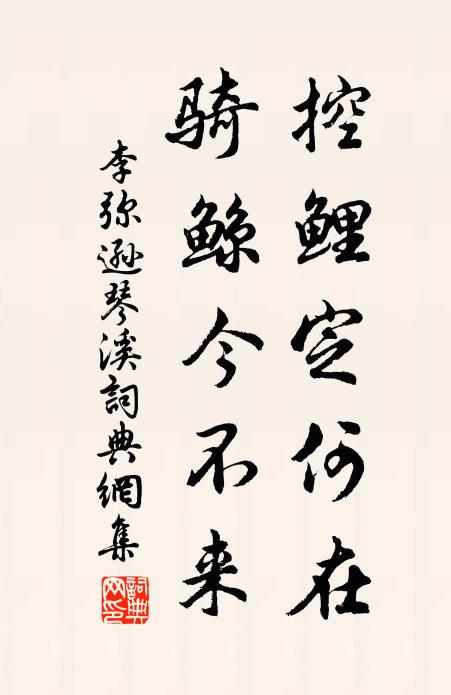 控鲤定何在
骑鲸今不来
李弥逊琴溪詞典網集
詞典网印